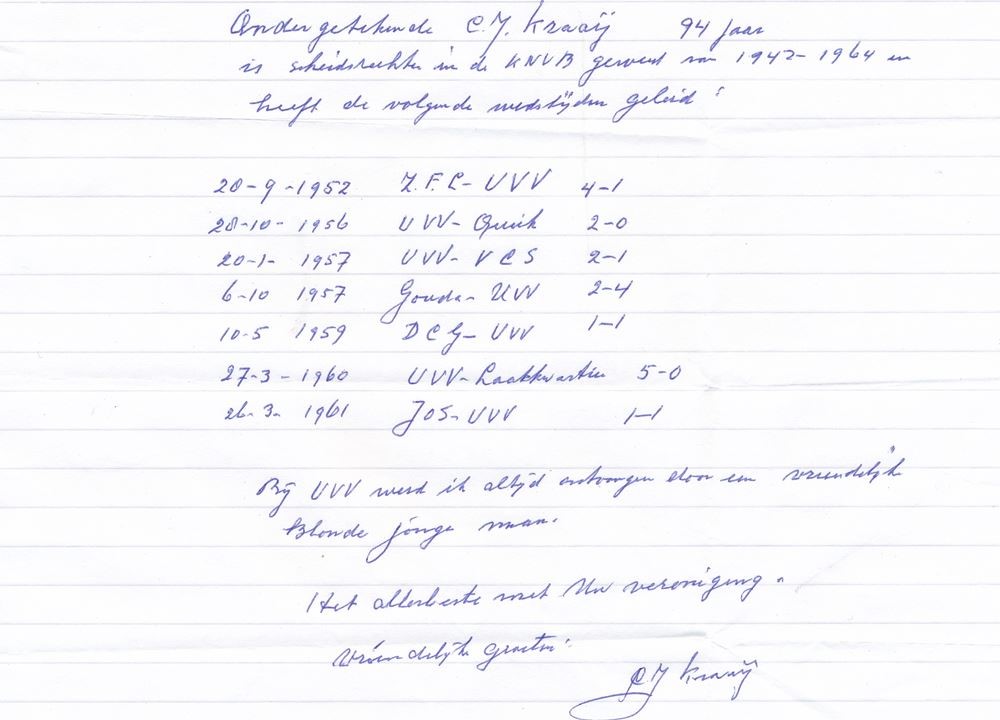 Ondergetekende C.J. Kraaij 94 jaar
is scheidsrechter in de KNVB geweest van 1942 - 1964 en
heeft de volgende wedstijden geleid :
20-9-1952 Z.F.C- UVV 4-1
28-10- 1956 UVV- Quick 2-0
20-1- 1957 UVV- VCS 2-1
6-10 1957 Gouda- UVV 2-4
10-5 1959 DCG- UVV 1-1
27-3-1960 UVV- Laakkwartier 5-0
26-3- 1961 JOS- UVV 1-1
Bij UVV werd ik altijd ontvangen door een vriendelijke
blonde jonge man.
Het allerbeste met Uw vereniging.
Vriendelijke groeten
CJ Kraaij